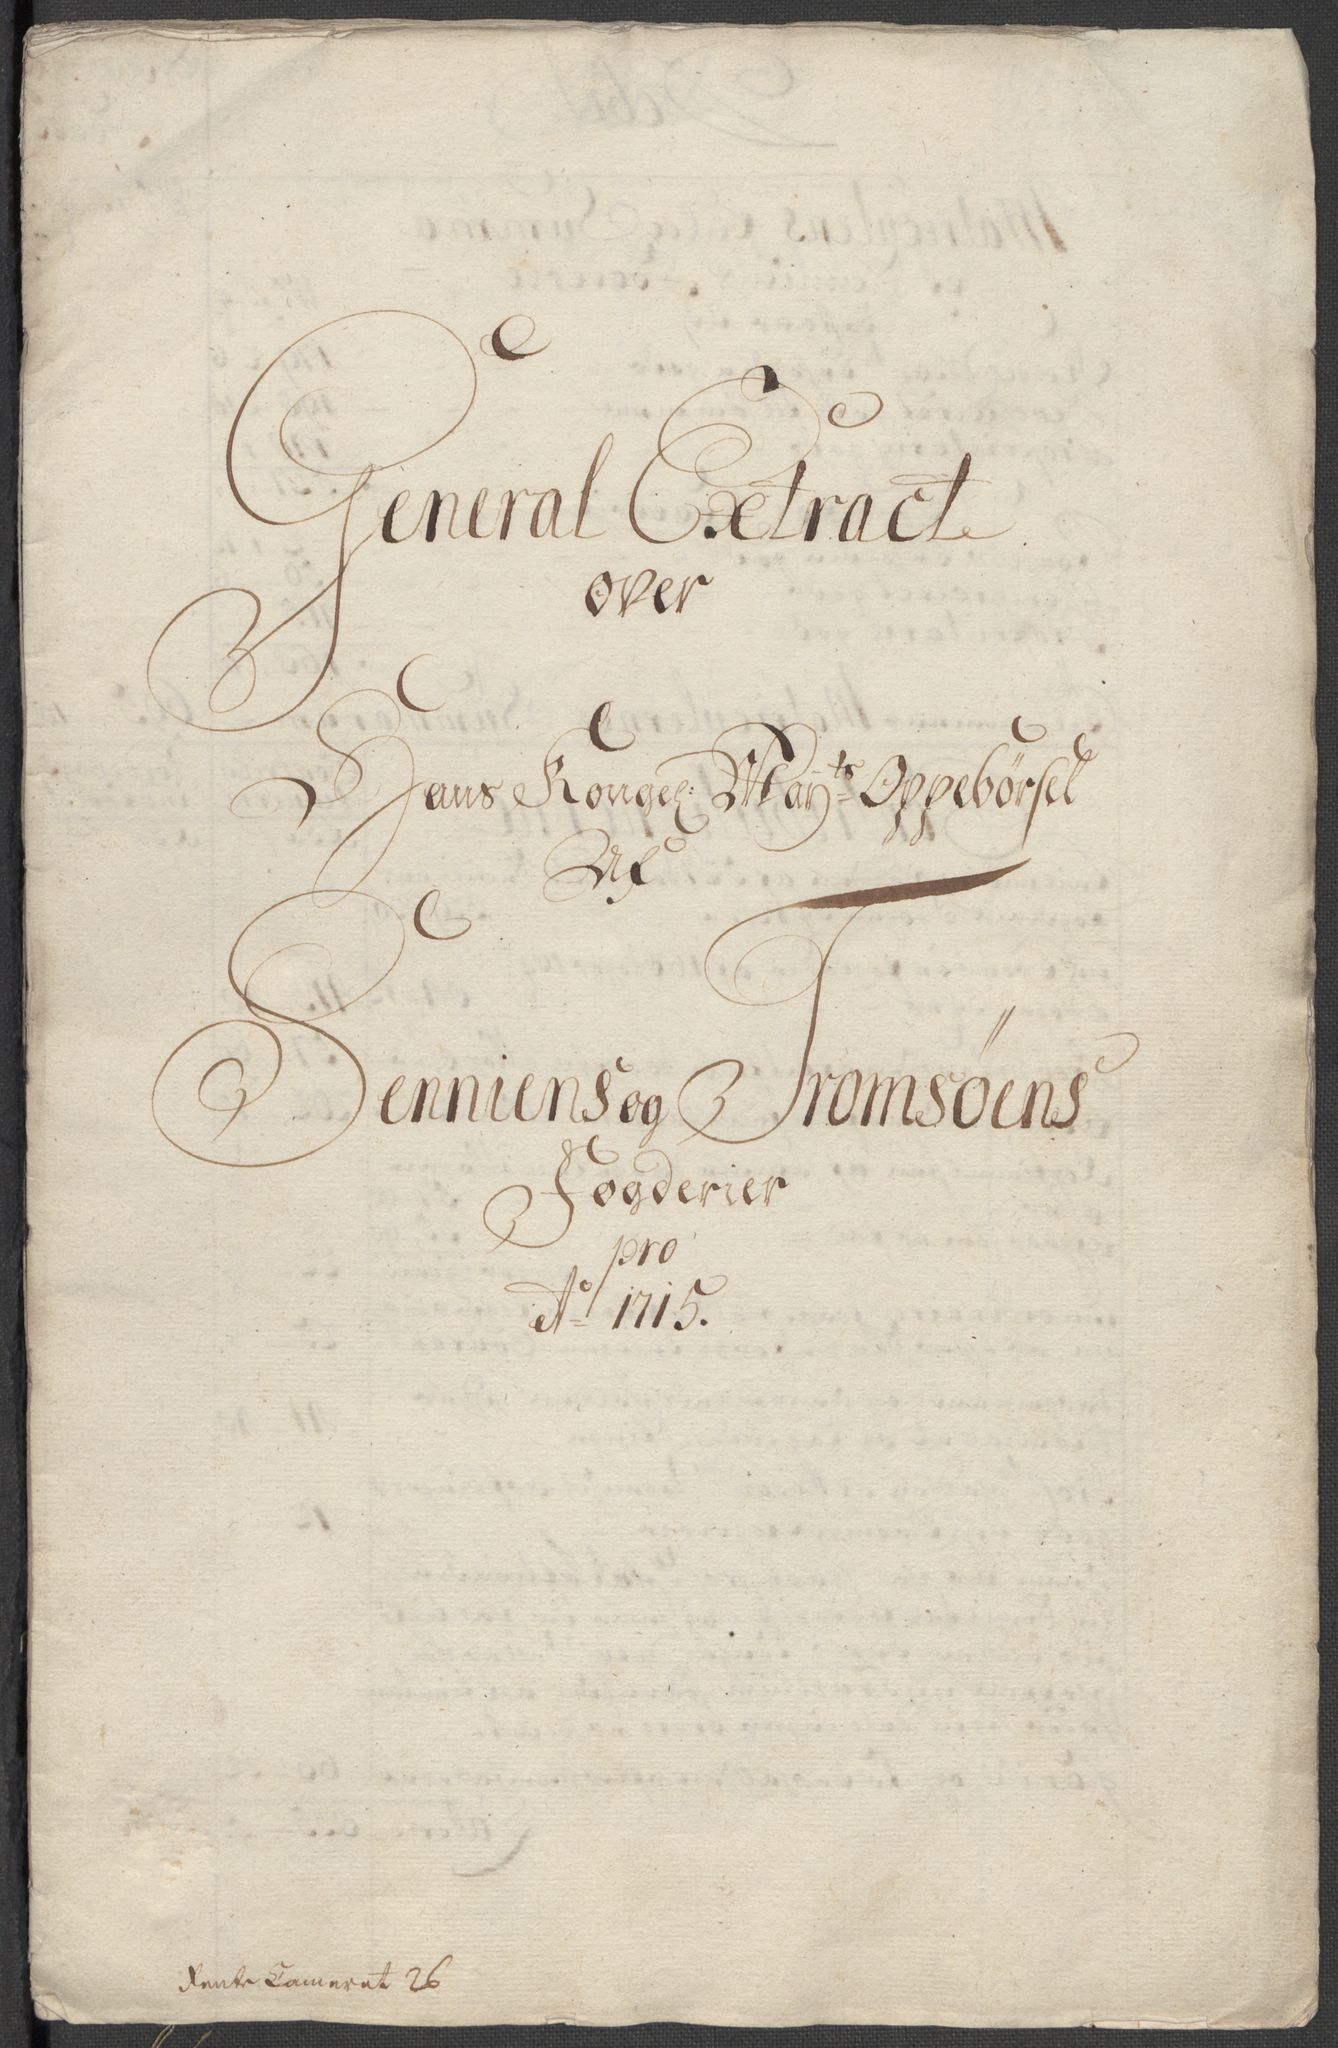 General Extract
over
Hans Kongel: Maÿ:ts Oppebørsel
Af
Senniens og Tromsøens
Fogderier
pro
Ao 1715.
Rente Cameret 26